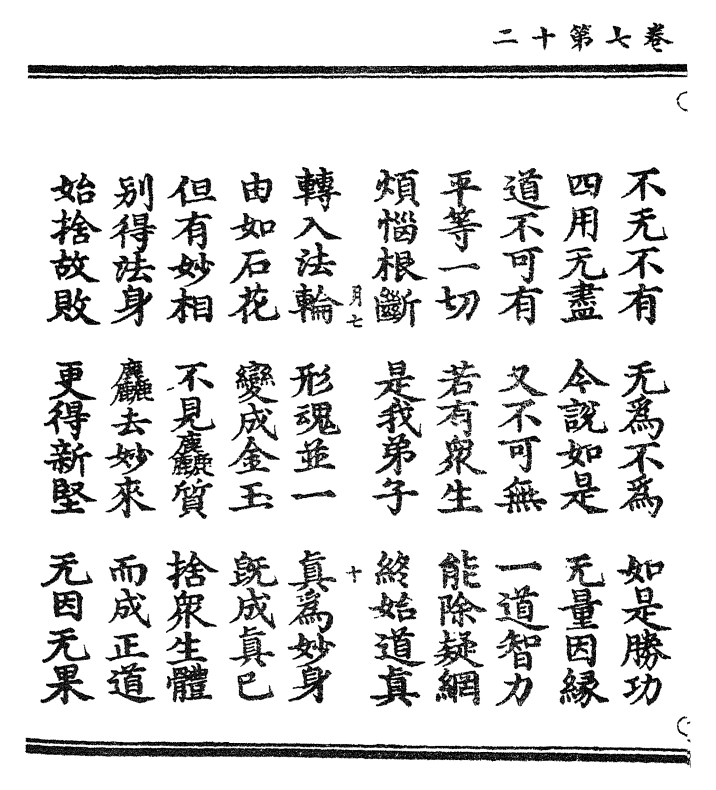 卷七第十二
不无不有　无爲不爲　如是勝功
四用无盡　今說如是　无量因緣
道不可有　又不可無　一道智力
平等一切　若有衆生　能除疑網
煩惱根斷　是我弟子　終始道真
月七　十
轉入法輪　形魂並一　真爲妙身
由如石花　變成金玉　既成真已
但有妙相　不見麤質　捨衆生體
别得法身　麤去妙來　而成正道
始捨故敗　更得新堅　无因无果